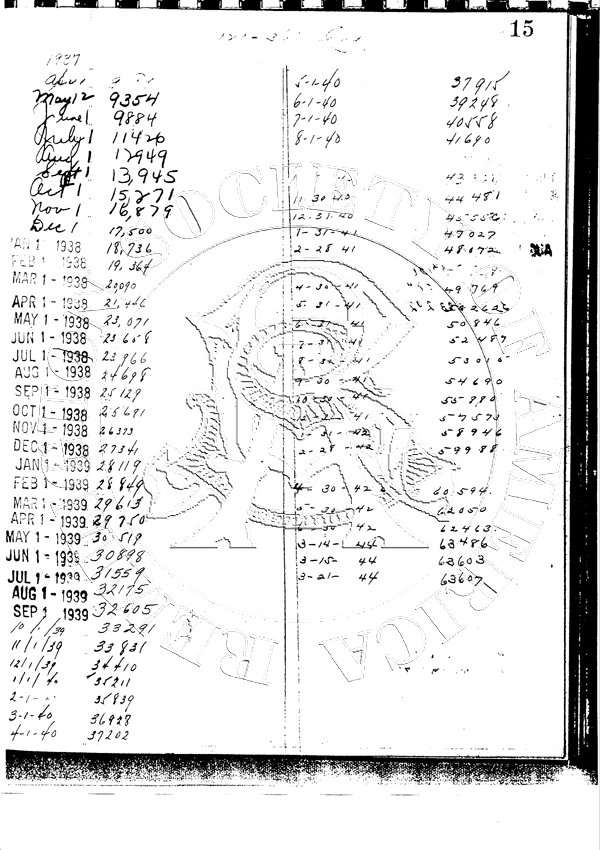 15
1937
May 12 9354
June 1 9884
July 1 11426
Aug 1 12949
Sept 1 13,945
Oct 1 15,271
Nov 1 16,879
Dec 1 17,500
JAN 1 1938 18,736
FEB 1 1938 19,364
MAR 1 - 1938 20,090
APR 1 - 1938 21,446
MAY 1 - 1938 23,071
JUN 1 - 1938 23,658
JUL 1 - 1938 23966
AUG 1 - 1938 24698
SEP 1 - 1938 25129
OCT 1 - 1938 25691
NOV 1 - 1938 26373
DEC 1 - 1938 27341
JAN 1 - 1939 28119
FEB 1 - 1939 28849
MAR 1 - 1939 29613
APR 1 - 1939 29750
MAY 1 - 1939 30519
JUN 1 - 1939 30898
JUL 1 - 1939 31559
AUG 1 - 1939 32175
SEP 1 1939 32605
10/1/39 33291
11/1/39 33831
12/1/39 34410
1/1/40 35211
2-1- 35839
3-1-40 36928
4-1-40 37202
5-1-40 37915
6-1-40 39248
7-1-40 40558
8-1-40 41690
11 30 40 44481
12.31.40 45556
1-31-41 47027
2-28 41 48.072
4-30-41 49769
5-31-41
6-31- 41 50846
7-31-41 52487
8-31-41 53015
9-30-41 54690
10-30-41 55880
41 57573
31-42 58946
2-28-42 59988
4-30-42 60,594
5-30-42 62050
6-30-42 62463
3-14-44 63486
3-15-44 63603
3-21-44 63607
SOCIETY OF AMERICA